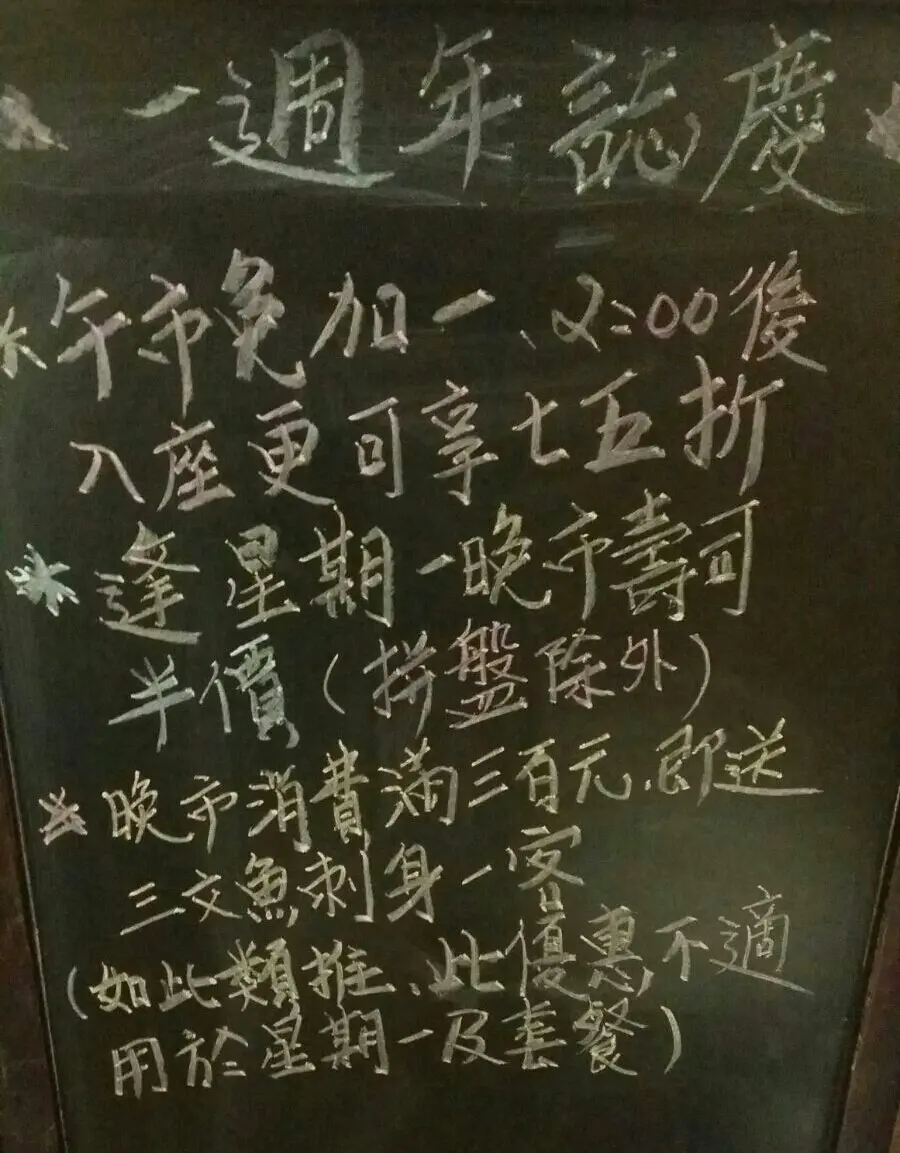 一週年誌慶
*午市免加一、2:00後
入座更可享七五折
*逢星期一晚市壽司
半價(拼盤除外)
*晚市消費滿三百元、即送
三文魚刺身一客
(如此類推、此優惠不適
用於星期一及套餐)